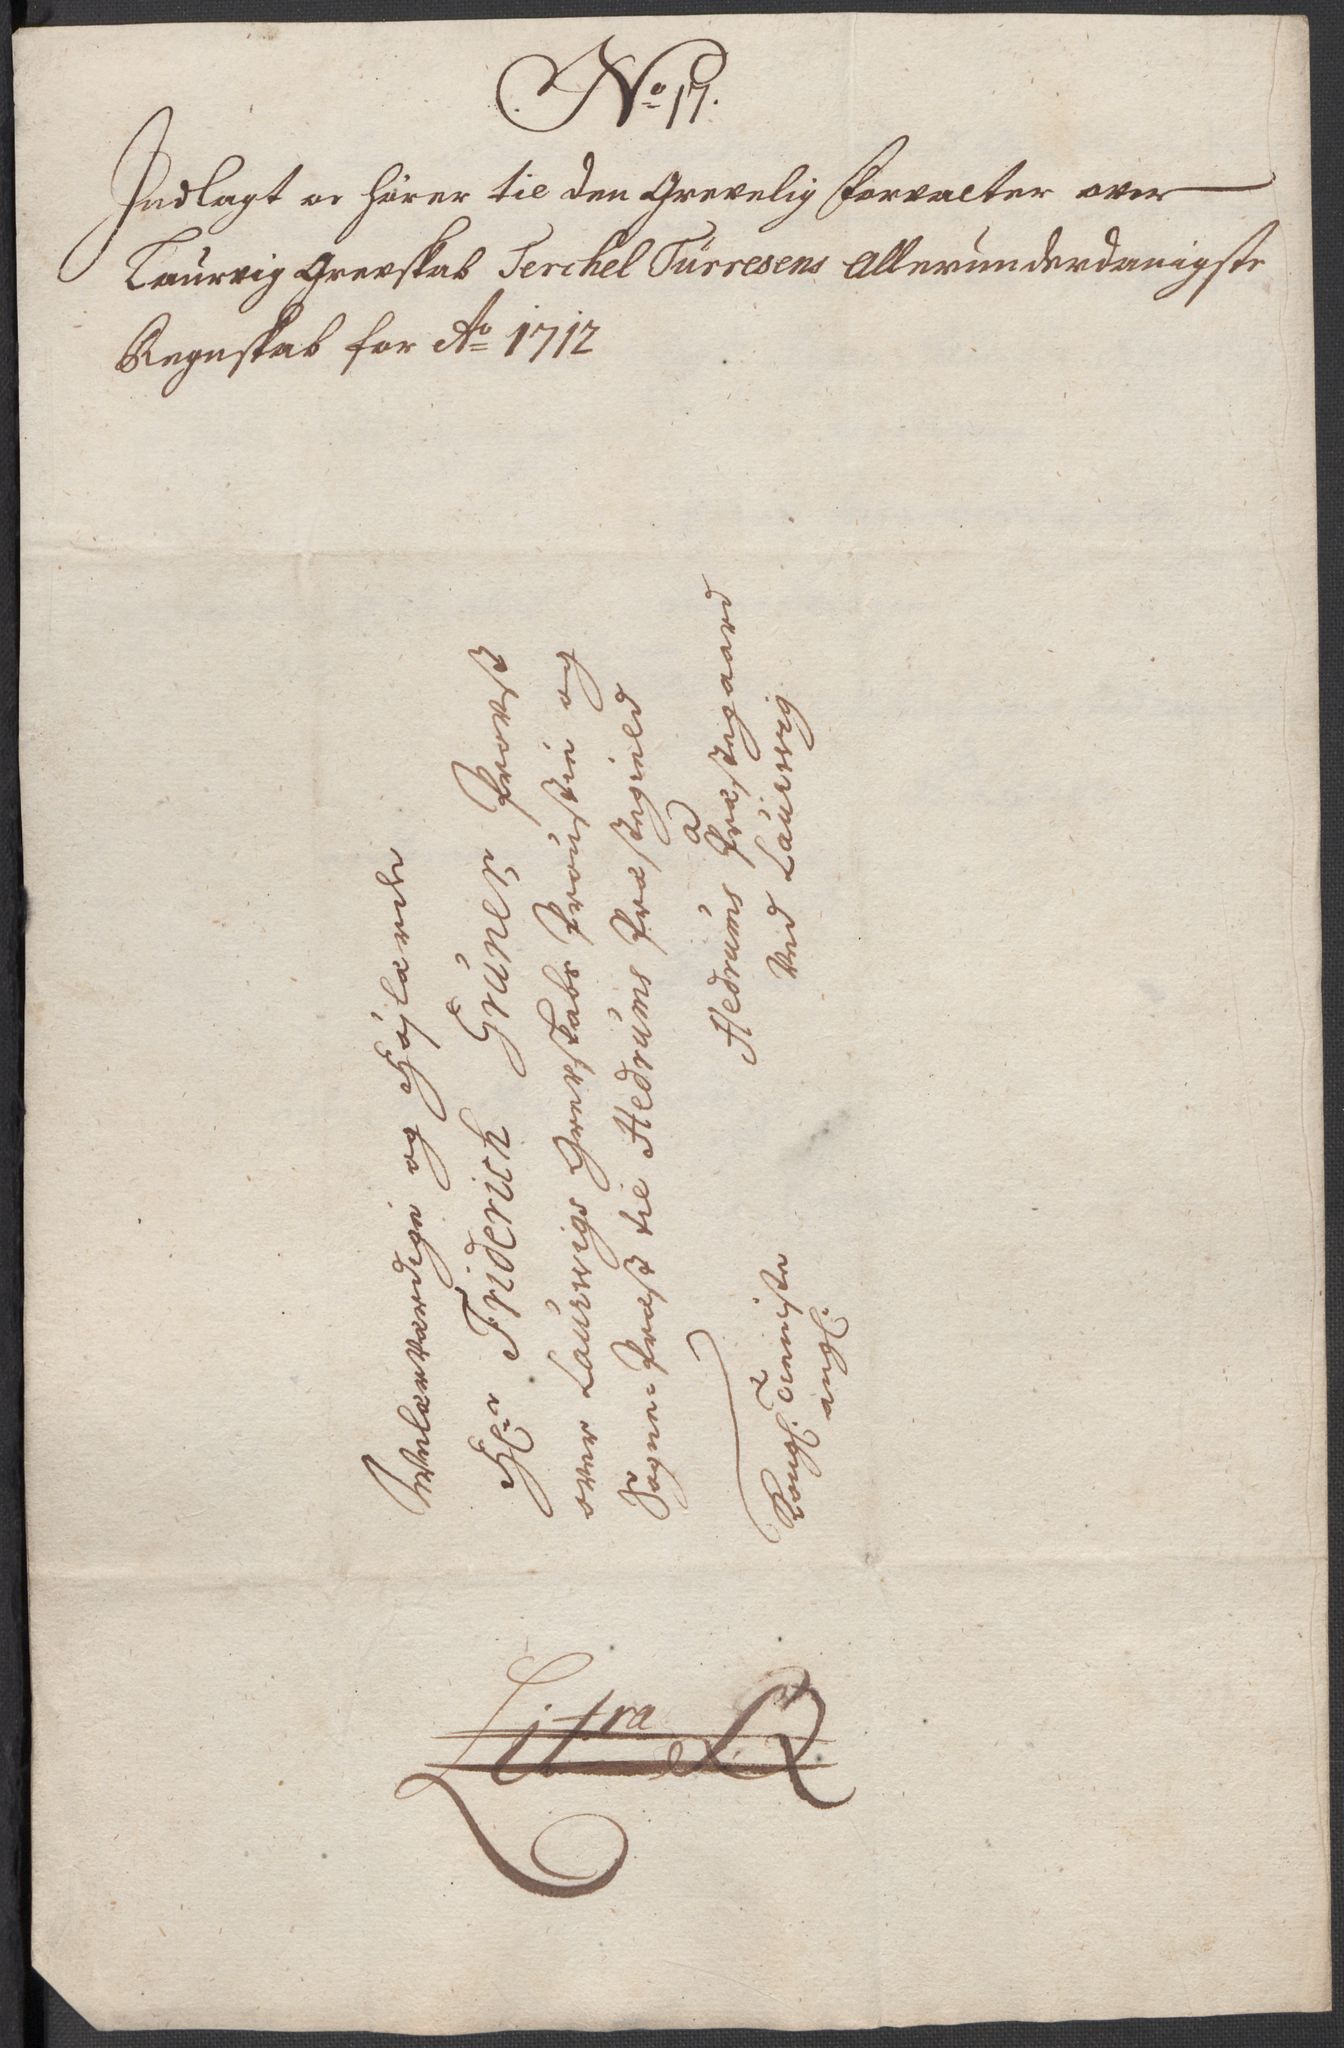 No 17.
Indlagt oc hører til den Grevelig forvalter over
Laurvig Grevskab Terchel Türresens Allerunderdanigste
Regnskab for Ao 1712
Welærværdige og Højlærde
Hr. Friderich Grüner Provst
over Laurwigs Grevskabs Proustie og
Sogne Præst til Hedrums Præstegield
a
Hedrums Præstegaard
ved Laurwig
Kongl. Tieniste
angl:
Litra R